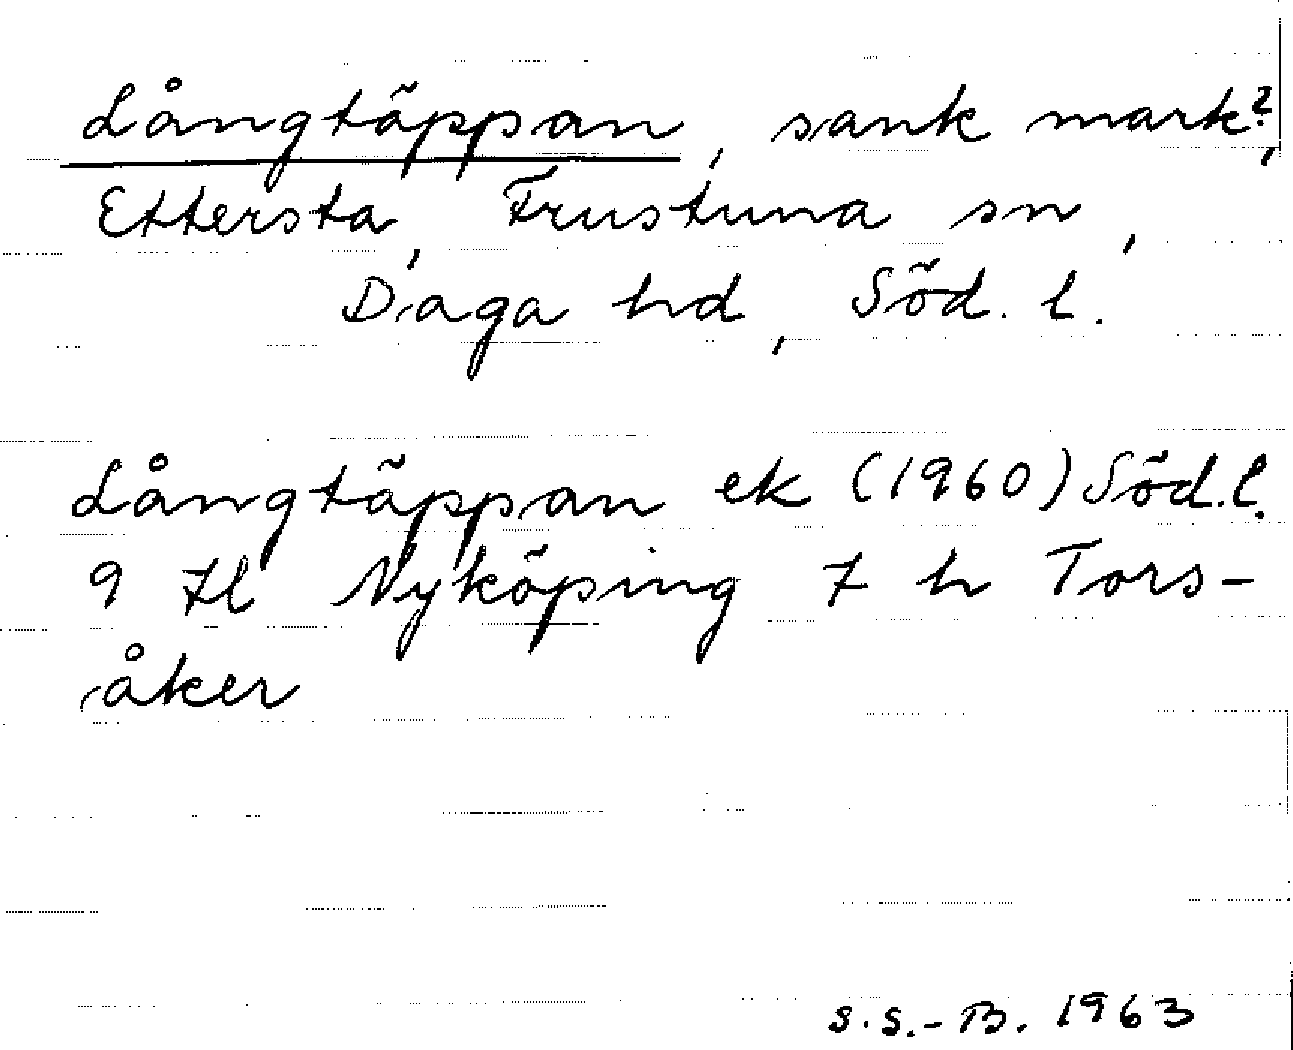 Långtäppan, sank mark?,
Ettersta, Frustuna sn,
Daga hd, Söd. l.
Långtäppan ek (1960) Söd. l.
9 Hl Nyköping 7 h Tors-
åker
S.S.-B. 1963